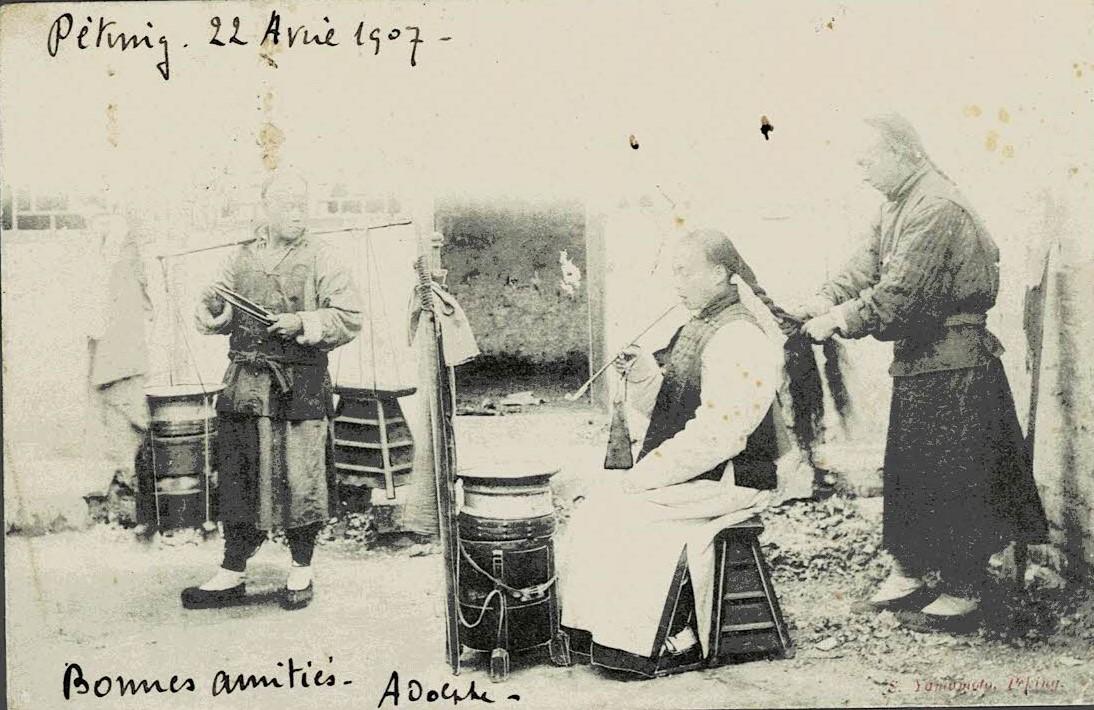 Péking. 22 Avril 1907 -
Bonnes amitiés -
Adolphe -
S. Yamamoto, Peking.